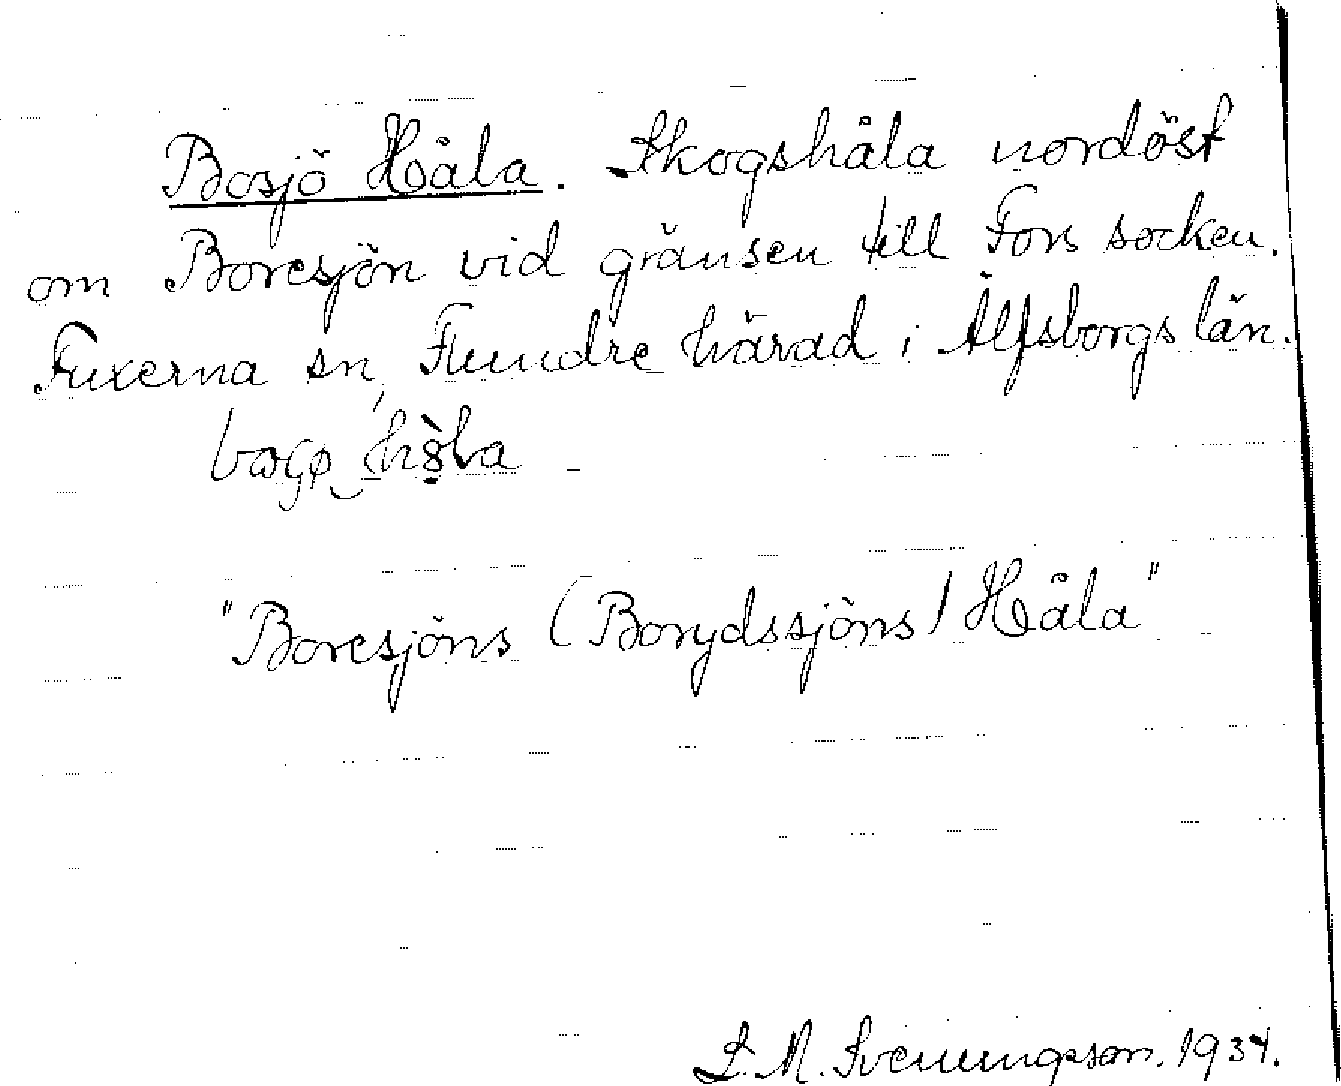 Bosjö Håla. Skogshåla nordöst
om Boresjön vid gränsen till Fors socken.
Fuxerna sn, Flundre härad i Älfsborgs län.
"Boresjöns (Borydssjöns) Håla"
S. M. Svenungson. 1934.